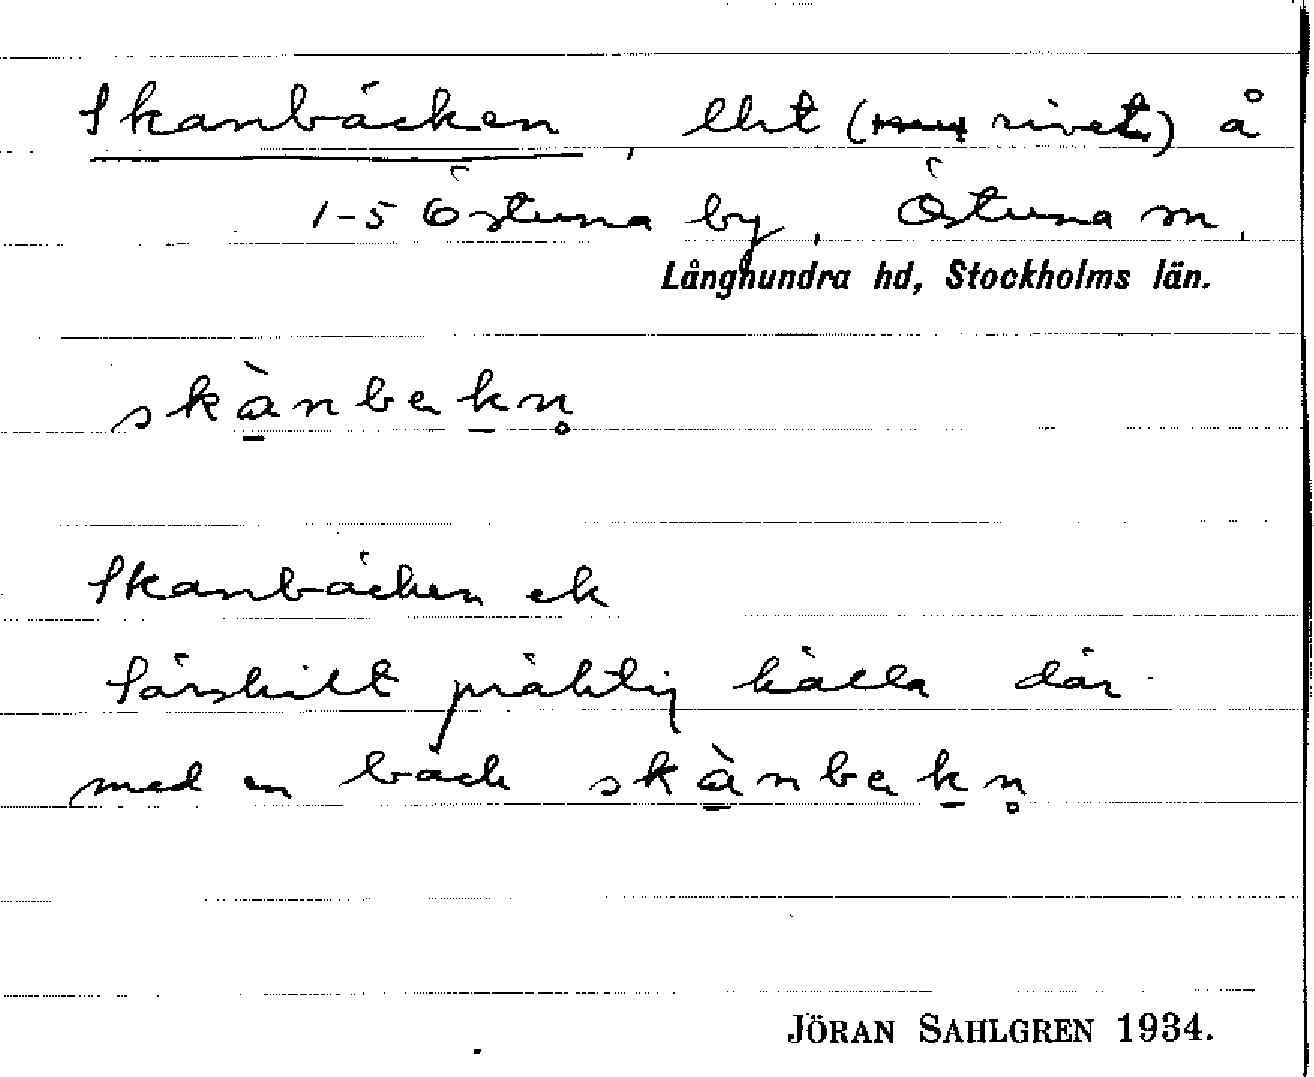 Skanbäcken, lht (rivet) å
1-5 Östuna by, Östuna sn,
Långhundra hd, Stockholms län.
skànbekn̥
Skanbäcken ek
Särskilt präktig källa där
med en bäck skànbekn̥
JÖRAN SAHLGREN 1934.